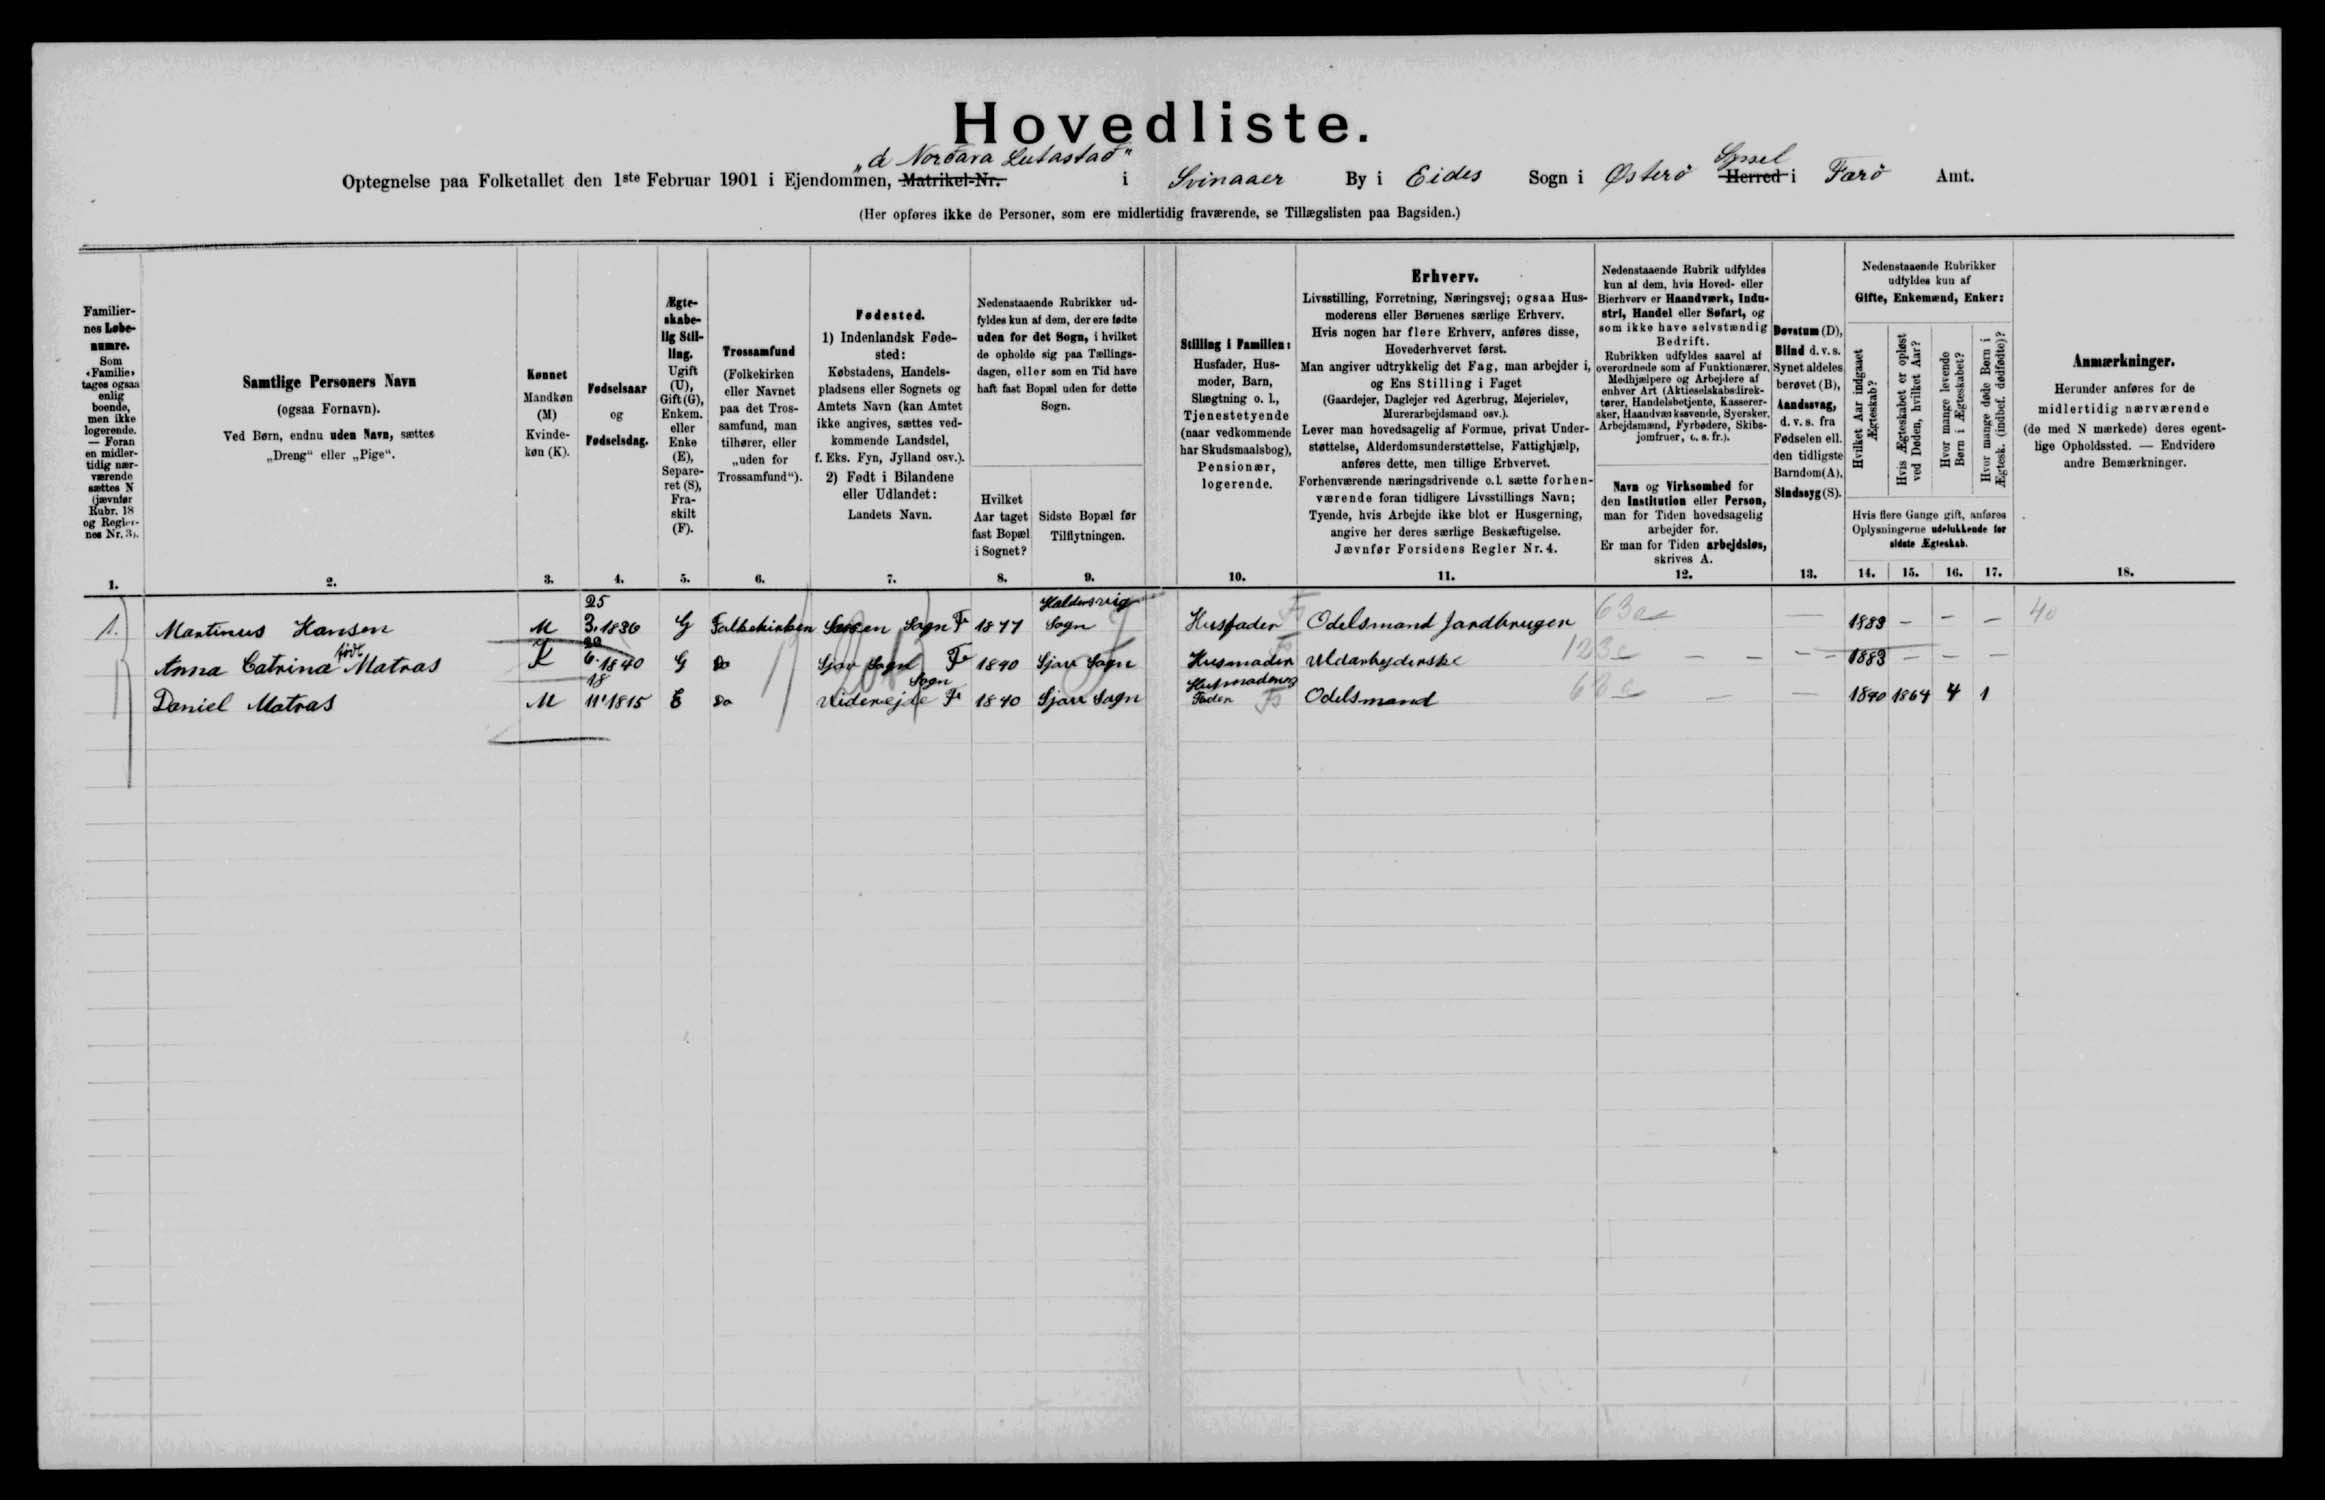 Hovedliste.
"á Norðara Lutastað"
Optegnelse paa Folketallet den 1ste Februar 1901 i Ejendommen, Matrikel-Nr. i Svinaaer By i Eides Sogn i Østerø Herred i Færø Amt.
Syssel
(Her opføres ikke de Personer, som ere midlertidig fraværende, se Tillægslisten paa Bagsiden.)
Familier-
nes Løbe-
numre.
Som
«Familie»
tages ogsaa
enlig
boende,
men ikke
logerende.
— Foran
en midler-
tidig nær-
værende
sættes N
(jævnfør
Rubr. 18
og Regler-
nes Nr. 3).
1.
Samtlige Personers Navn
(ogsaa Fornavn).
Ved Børn, endnu uden Navn, sættes
„Dreng“ eller „Pige“.
2.
Kønnet
Mandkøn
(M)
Kvinde-
køn (K).
3.
Fødselsaar
og
Fødselsdag.
4.
Ægte-
skabe-
lig Stil-
ling.
Ugift
(U),
Gift (G),
Enkem.
eller
Enke
(E),
Separe-
ret (S),
Fra-
skilt
(F).
5.
Trossamfund
(Folkekirken
eller Navnet
paa det Tros-
samfund, man
tilhører, eller
„uden for
Trossamfund“).
6.
Fødested.
1) Indenlandsk Føde-
sted:
Købstadens, Handels-
pladsens eller Sognets og
Amtets Navn (kan Amtet
ikke angives, sættes ved-
kommende Landsdel,
f. Eks. Fyn, Jylland osv.).
2) Født i Bilandene
eller Udlandet:
Landets Navn.
7.
Nedenstaaende Rubrikker ud-
fyldes kun af dem, der ere fødte
uden for det Sogn, i hvilket
de opholde sig paa Tællings-
dagen, eller som en Tid have
haft fast Bopæl uden for dette
Sogn.
Hvilket
Aar taget
fast Bopæl
i Sognet?
8.
Sidste Bopæl før
Tilflytningen.
9.
Stilling i Familien:
Husfader, Hus-
moder, Barn,
Slægtning o. l.,
Tjenestetyende
(naar vedkommende
har Skudsmaalsbog),
Pensionær,
logerende.
10.
Erhverv.
Livsstilling, Forretning, Næringsvej; ogsaa Hus-
moderens eller Børnenes særlige Erhverv.
Hvis nogen har flere Erhverv, anføres disse,
Hovederhvervet først.
Man angiver udtrykkelig det Fag, man arbejder i,
og Ens Stilling i Faget
(Gaardejer, Daglejer ved Agerbrug, Mejerielev,
Murerarbejdsmand osv.).
Lever man hovedsagelig af Formue, privat Under-
støttelse, Alderdomsunderstøttelse, Fattighjælp,
anføres dette, men tillige Erhvervet.
Forhenværende næringsdrivende o.l. sætte forhen-
værende foran tidligere Livsstillings Navn;
Tyende, hvis Arbejde ikke blot er Husgerning,
angive her deres særlige Beskæftigelse.
Jævnfør Forsidens Regler Nr. 4.
11.
Nedenstaaende Rubrik udfyldes
kun af dem, hvis Hoved- eller
Bierhverv er Haandværk, Indu-
stri, Handel eller Søfart, og
som ikke have selvstændig
Bedrift.
Rubrikken udfyldes saavel af
overordnede som af Funktionærer,
Medhjælpere og Arbejdere af
enhver Art (Aktieselskabsdirek-
tører, Handelsbetjente, Kasserer-
sker, Haandværkssvende, Syersker,
Arbejdsmænd, Fyrbødere, Skibs-
jomfruer, o. s. fr.).
Navn og Virksomhed for
den Institution eller Person,
man for Tiden hovedsagelig
arbejder for.
Er man for Tiden arbejdsløs,
skrives A.
12.
Døvstum (D),
Blind d. v. s.
Synet aldeles
berøvet (B),
Aandssvag,
d. v. s. fra
Fødselen ell.
den tidligste
Barndom (A),
Sindssyg (S).
13.
Nedenstaaende Rubrikker
udfyldes kun af
Gifte, Enkemænd, Enker:
Hvilket Aar indgaaet
Ægteskab?
Hvis Ægteskabet er opløst
ved Døden, hvilket Aar?
Hvor mange levende
Børn i Ægteskabet?
Hvor mange døde Børn i
Ægtesk. (indbef. dødfødte)?
Hvis flere Gange gift, anføres
Oplysningerne udelukkende for
sidste Ægteskab.
14. 15. 16. 17.
Anmærkninger.
Herunder anføres for de
midlertidig nærværende
(de med N mærkede) deres egent-
lige Opholdssted. — Endvidere
andre Bemærkninger.
18.
25 Haldersvig
1. Martinus Hansen M 3. 1836 G Folkekirken Sogn Fr 1877 Sogn Husfader Odelsmand Jordbruger 63 — 1883 — — — 40
20
Anna Catrina født Matras K 6. 1840 G Do Sjov Sogn Fr 1890 Sjov Sogn Husmoder Uldarbejderske 123 — — — — 1883 — — —
18 Sogn Husmoderens
Daniel Matras M 11 1815 E Do Videreje Fr 1840 Sjov Sogn Fader Odelsmand 63 — — 1840 1864 4 1